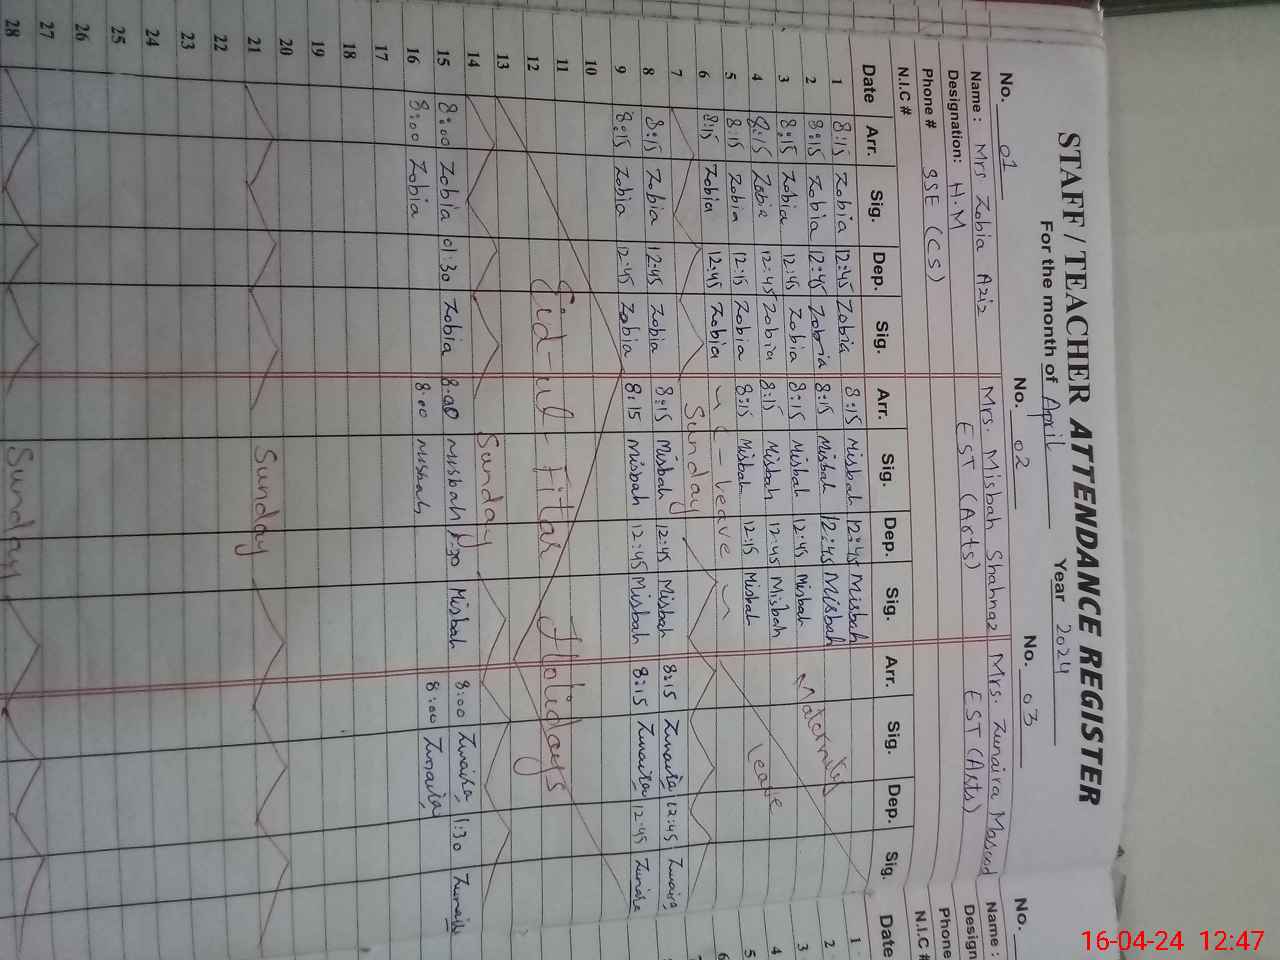 STAFF / TEACHER ATTENDANCE REGISTER
For the month of April Year 2024
No. 01 No. 02 No. 03 No.
Name : Mrs Zobia Aziz Mrs. Misbah Shahnaz Mrs. Zunaira Masood Name :
Designation: H.M EST (Arts) EST (Arts) Design
Phone # SSE (CS) Phone
N.I.C # N.I.C #
Date Arr. Sig. Dep. Sig. Arr. Sig. Dep. Sig. Arr. Sig. Dep. Sig. Date
1 8:15 Zobia 12:45 Zobia 8:15 Misbah 12:45 Misbah 1
2 8:15 Zobia 12:45 Zobia 8:15 Misbah 12:45 Misbah Maternity 2
3 8:15 Zobia 12:45 Zobia 8:15 Misbah 12:45 Misbah 3
4 8:15 Zobia 12:45 Zobia 8:15 Misbah 12:45 Misbah Leave 4
5 8:15 Zobia 12:15 Zobia 8:15 Misbah 12:15 Misbah 5
6 8:15 Zobia 12:45 Zobia leave 6
7 Sunday
8 8:15 Zobia 12:45 Zobia 8:15 Misbah 12:45 Misbah 8:15 Zunaira 12:45 Zunaira
9 8:15 Zobia 12:45 Zobia 8:15 Misbah 12:45 Misbah 8:15 Zunaira 12:45 Zunaira
10
11
12 Eid-ul-Fitar Holidays
13
14 Sunday
15 8:00 Zobia 01:30 Zobia 8:00 Misbah 1:30 Misbah 8:00 Zunaira 1:30 Zunaira
16 8:00 Zobia 8:00 Misbah 8:00 Zunaira
17
18
19
20
21 Sunday
22
23
24
25
26
27
28 Sunday
16-04-24 12:47